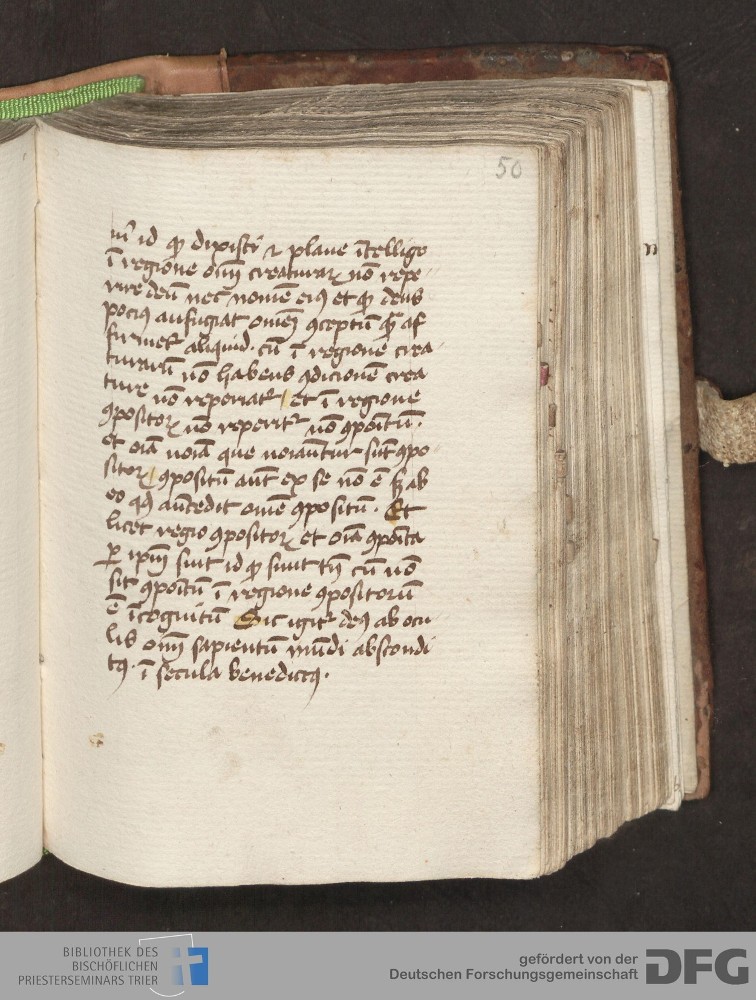 50
in̄ id qp̄ dixisti ⁊ plane ītelligo
ī regione om̄ creaturaꝝ nō repe-
rire deū nec nomē eiꝰ et qp̄ deus
pociꝰ aufugiat omē ꝯceptū q̄ af
firmet᷑ aliquid. cū ī regione crea-
turarū nō habens ꝯdicionē crea
ture nō reperiat᷑ / et ī regione
ꝯpositoꝝ nō reperit᷑ nō ꝯpoītū.
et oīa noīa que noīantur sūt ꝯpo-
sitoꝝ / ꝯpositū aūt ex se nō ē sꝫ ab
eo qd̄ an̄cedit omē ꝯpositū. Et
licet regio ꝯpositoꝝ et oīa ꝯpoīta
ꝑ ip̄m sint id qp̄ sunt tn̄ cū nō
sit ꝯpoītū ī regione ꝯpositorū
ē īcognitū Sic igit᷑ deꝰ ab ocu-
lis om̄ sapientū mūdi abscondi
tꝰ. ī secula benedictꝰ.
BIBLIOTHEK DES
BISCHÖFLICHEN
PRIESTERSEMINARS TRIER
gefördert von der
Deutschen Forschungsgemeinschaft
DFG